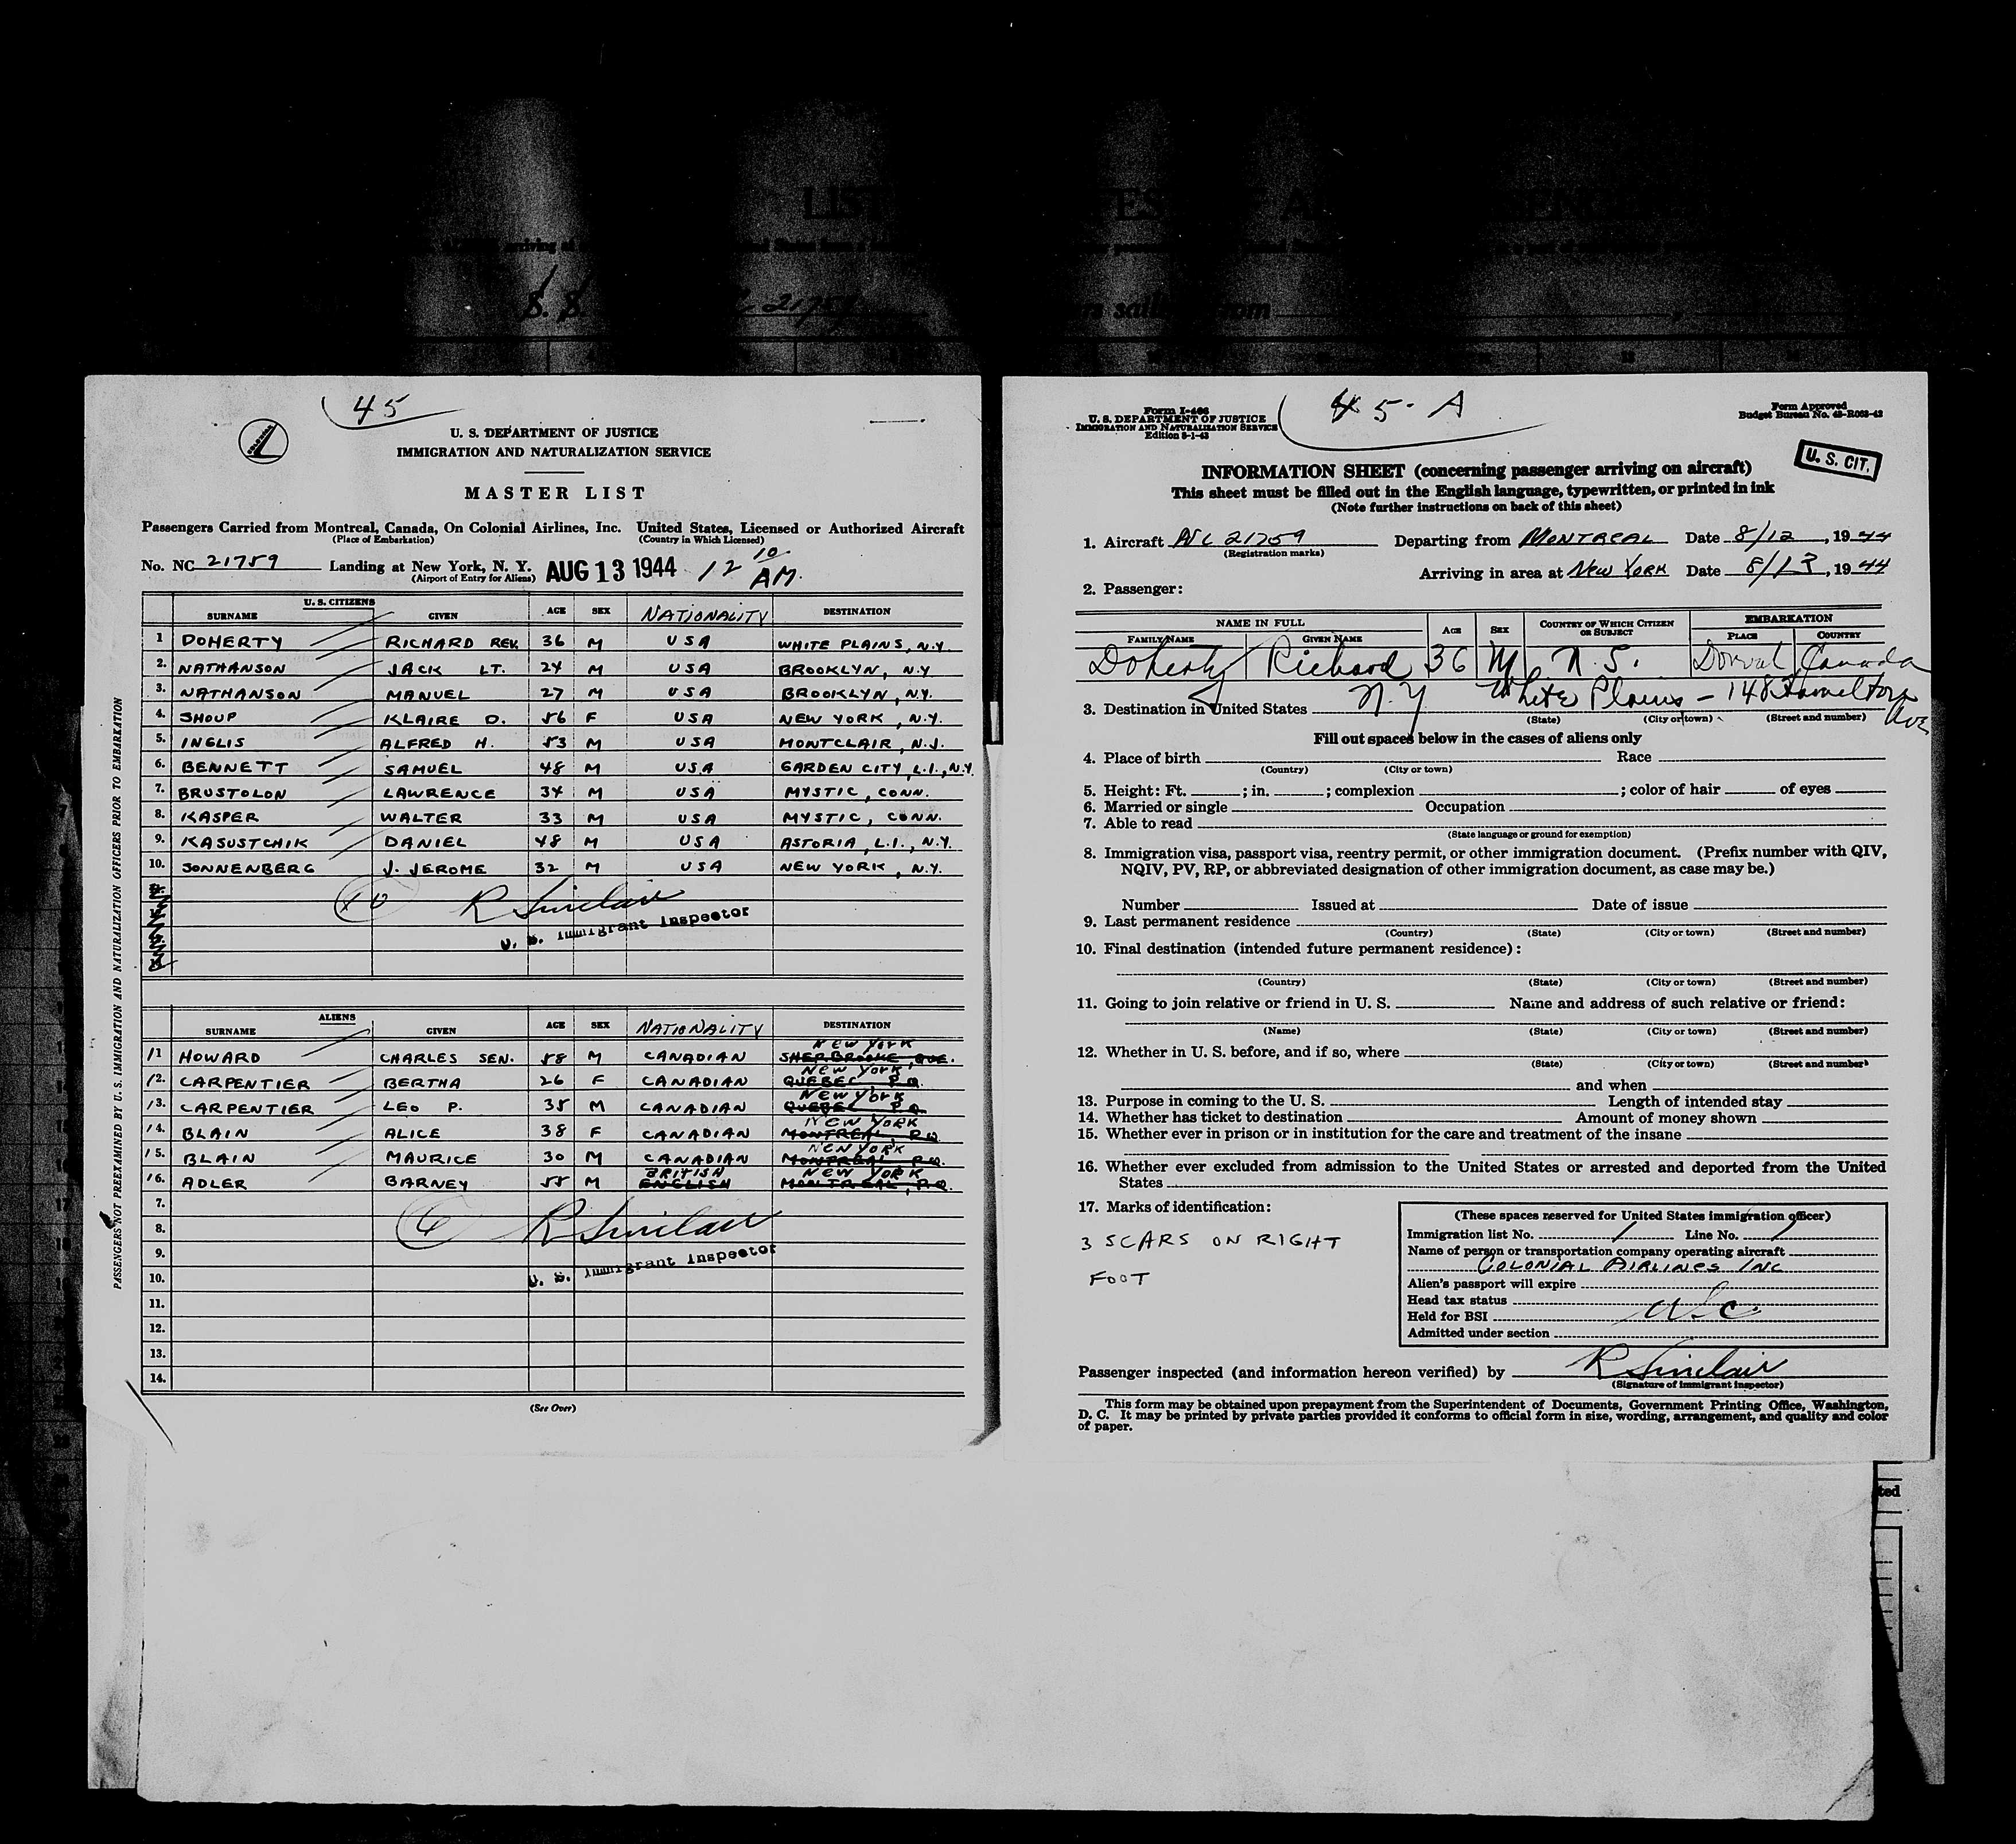 45
U. S. DEPARTMENT OF JUSTICE
IMMIGRATION AND NATURALIZATION SERVICE
MASTER LIST
Passengers Carried from Montreal, Canada, On Colonial Airlines, Inc. United States, Licensed or Authorized Aircraft
(Place of Embarkation) (Country in Which Licensed)
No. NC 21759 Landing at New York, N. Y. AUG 13 1944 12 10 AM.
(Airport of Entry for Aliens)
U. S. CITIZENS
SURNAME GIVEN AGE SEX NATIONALITY DESTINATION
1 DOHERTY RICHARD REV. 36 M USA WHITE PLAINS, N.Y.
2. NATHANSON JACK LT. 24 M USA BROOKLYN, N.Y
3. NATHANSON MANUEL 27 M USA BROOKLYN, N.Y.
4. SHOUP KLAIRE D. 56 F USA NEW YORK, N.Y.
5. INGLIS ALFRED H. 53 M USA MONTCLAIR, N.J.
6. BENNETT SAMUEL 48 M USA GARDEN CITY, L.I., N.Y.
7. BRUSTOLON LAWRENCE 34 M USA MYSTIC, CONN.
8. KASPER WALTER 33 M USA MYSTIC, CONN.
9. KASUSTCHIK DANIEL 48 M USA ASTORIA, L.I., N.Y.
10. SONNENBERG J. JEROME 32 M USA NEW YORK, N.Y.
10 R Sinclair
U. S. Immigrant Inspector
ALIENS
SURNAME GIVEN AGE SEX NATIONALITY DESTINATION
NEW YORK
11 HOWARD CHARLES SEN. 58 M CANADIAN SHERBROOKE, QUE.
NEW YORK
12. CARPENTIER BERTHA 26 F CANADIAN QUEBEC, P.Q.
NEW YORK
13. CARPENTIER LEO P. 35 M CANADIAN QUEBEC P.Q.
NEW YORK
14. BLAIN ALICE 38 F CANADIAN MONTREAL, P.Q.
NEW YORK
15. BLAIN MAURICE 30 M CANADIAN MONTREAL P.Q.
BRITISH NEW YORK
16. ADLER BARNEY 55 M ENGLISH MONTREAL, P.Q.
7.
8. 6 R Sinclair
9. U. S. Immigrant Inspector
10.
11.
12.
13.
14.
(See Over)
PASSENGERS NOT PREEXAMINED BY U. S. IMMIGRATION AND NATURALIZATION OFFICERS PRIOR TO EMBARKATION
45-A
Form I-466
U. S. DEPARTMENT OF JUSTICE
IMMIGRATION AND NATURALIZATION SERVICE
Edition 8-1-43
Form Approved
Budget Bureau No. 43-R063-42
U. S. CIT.
INFORMATION SHEET (concerning passenger arriving on aircraft)
This sheet must be filled out in the English language, typewritten, or printed in ink
(Note further instructions on back of this sheet)
1. Aircraft NC 21759 Departing from MONTREAL Date 8/12, 1944
(Registration marks)
Arriving in area at NEW YORK Date 8/13, 1944
2. Passenger:
NAME IN FULL AGE SEX COUNTRY OF WHICH CITIZEN OR SUBJECT EMBARKATION
FAMILY NAME GIVEN NAME PLACE COUNTRY
Doherty Richard 36 M U.S. Dorval Canada
3. Destination in United States N.Y White Plains - 148 Hamilton Ave
(State) (City or town) (Street and number)
Fill out spaces below in the cases of aliens only
4. Place of birth Race
(Country) (City or town)
5. Height: Ft. ; in. ; complexion ; color of hair of eyes
6. Married or single Occupation
7. Able to read
(State language or ground for exemption)
8. Immigration visa, passport visa, reentry permit, or other immigration document. (Prefix number with QIV,
NQIV, PV, RP, or abbreviated designation of other immigration document, as case may be.)
Number Issued at Date of issue
9. Last permanent residence
(Country) (State) (City or town) (Street and number)
10. Final destination (intended future permanent residence):
(Country) (State) (City or town) (Street and number)
11. Going to join relative or friend in U. S. Name and address of such relative or friend:
(Name) (State) (City or town) (Street and number)
12. Whether in U. S. before, and if so, where
(State) (City or town) (Street and number)
and when
13. Purpose in coming to the U. S. Length of intended stay
14. Whether has ticket to destination Amount of money shown
15. Whether ever in prison or in institution for the care and treatment of the insane
16. Whether ever excluded from admission to the United States or arrested and deported from the United
States
17. Marks of identification:
3 SCARS ON RIGHT
FOOT
(These spaces reserved for United States immigration officer)
Immigration list No. 1 Line No. 1
Name of person or transportation company operating aircraft
COLONIAL AIRLINES INC
Alien's passport will expire
Head tax status
Held for BSI
Admitted under section
Passenger inspected (and information hereon verified) by R Sinclair
(Signature of Immigrant Inspector)
This form may be obtained upon prepayment from the Superintendent of Documents, Government Printing Office, Washington,
D. C. It may be printed by private parties provided it conforms to official form in size, wording, arrangement, and quality and color
of paper.